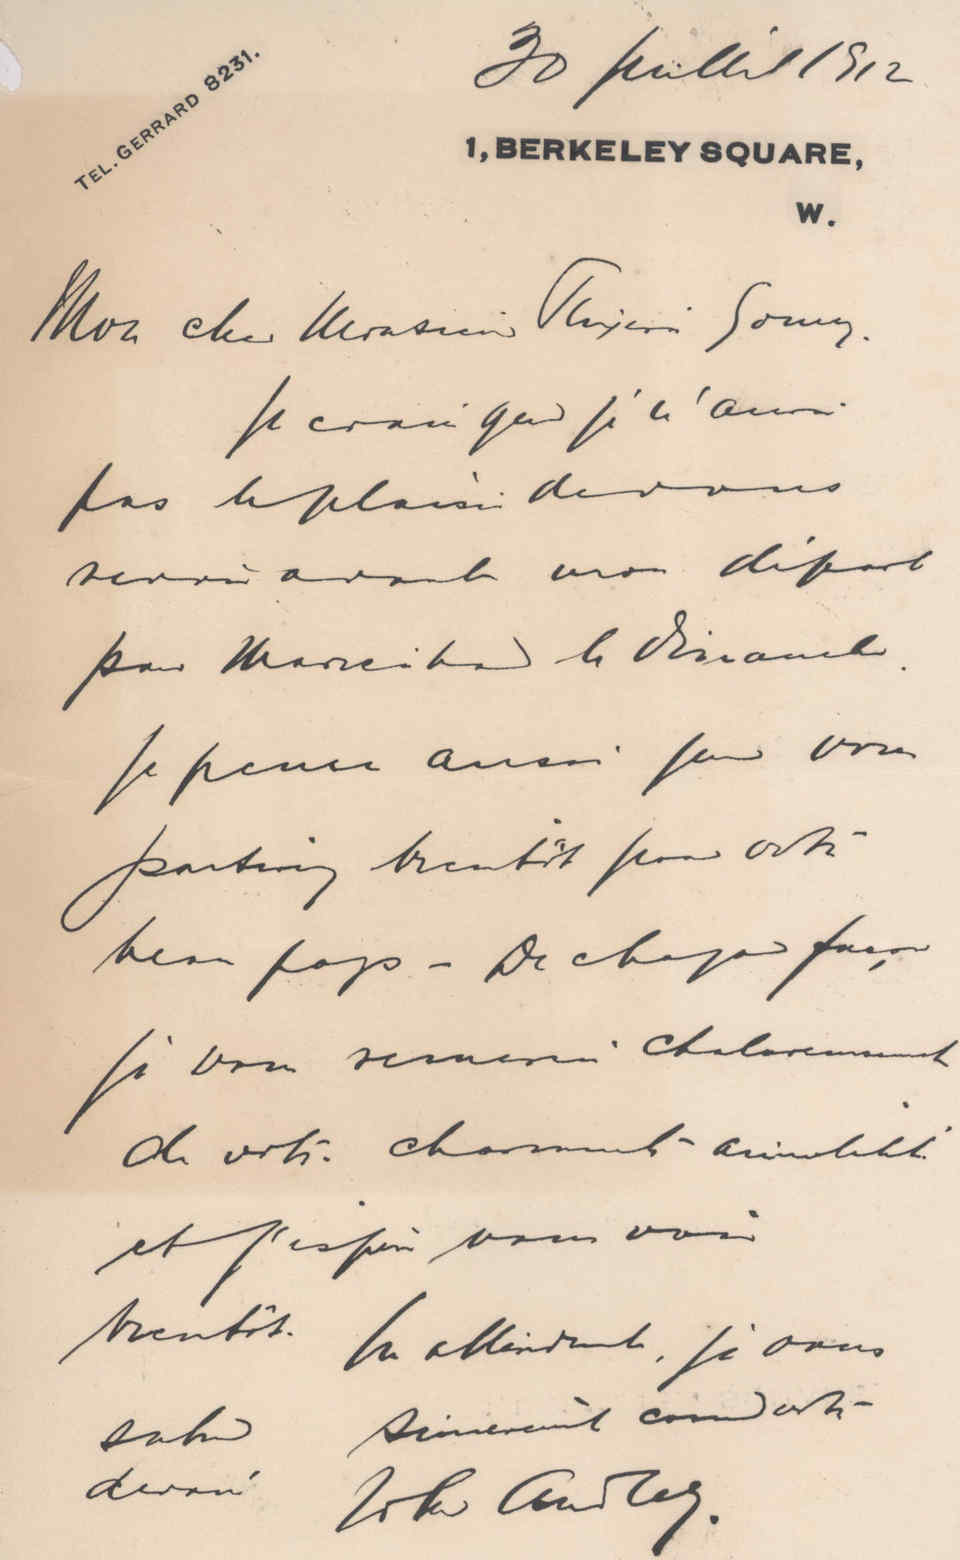 TEL. GERRARD 8231.
30 Juillet 1912
1, BERKELEY SQUARE,
W.
Mon cher Monsieur Teixeira Gomez.
Je crains que je n'aurai
pas le plaisir de vous
revoir avant mon départ
pour Marienbad le Dimanche.
Je pense aussi que vous
partirez bientôt pour votre
beau pays - De chaque façon
je vous remercie chaleureusement
de votre charmante aimabilité
et j'espère vous voir
bientôt. En attendant, je vous
salue sincèrement comme votre
devoué John Audley.